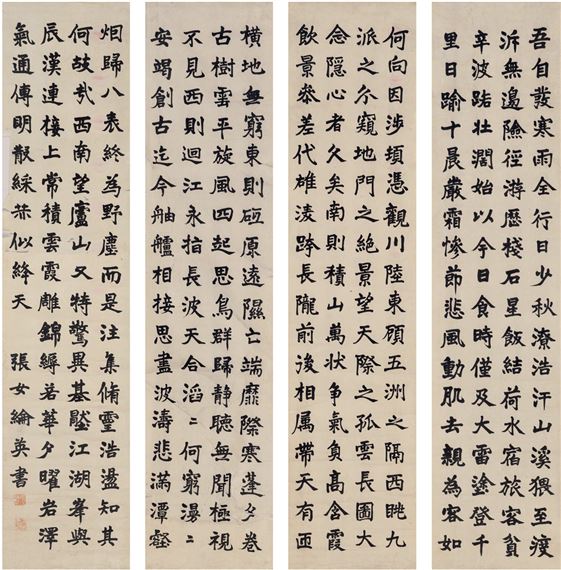 吾自發寒雨全行日少秋潦浩汗山溪猥至渡
泝無邊險徑游歷棧石星飯結荷水宿旅客貧
辛波路壯闊始以今日食時僅及大雷塗登千
里日踰十晨嚴霜慘節悲風動肌去親為客如
何向因涉頃憑觀川陸東顧五洲之隔西眺九
派之分窺地門之絕景望天際之孤雲長圖大
念隱心者久矣南則積山萬狀爭氣負高含霞
飲景參差代雄淩跨長隴前後相属帶天有匝
橫地無窮東則砥原遠隰亡端靡際寒蓬夕卷
古樹雲平旋風四起思鳥群歸靜聽無聞極視
不見西則迴江永指長波天合滔〻何窮漫〻
安竭創古迄今舳艫相接思盡波濤悲滿潭壑
烟歸八表終為野塵而是注集脩靈浩盪知其
何故哉西南望廬山又特驚異基壓江湖峯與
辰漢連接上常積雲霞雕錦縟若華夕曜岩澤
氣通傳明散綵赫似絳天 張女綸英書